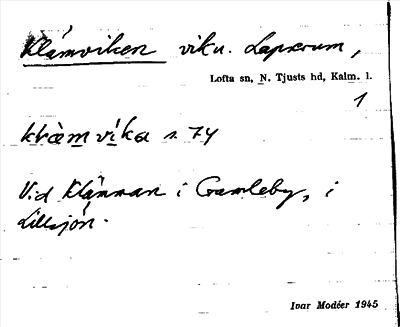 Klämviken vik u. Laxerum,
Lofta sn, N. Tjusts hd, Kalm. l.
1
klæ̀mvíka s. 74
Vid Klämman i Gamleby, i
Lillsjön.
Ivar Modéer 1945